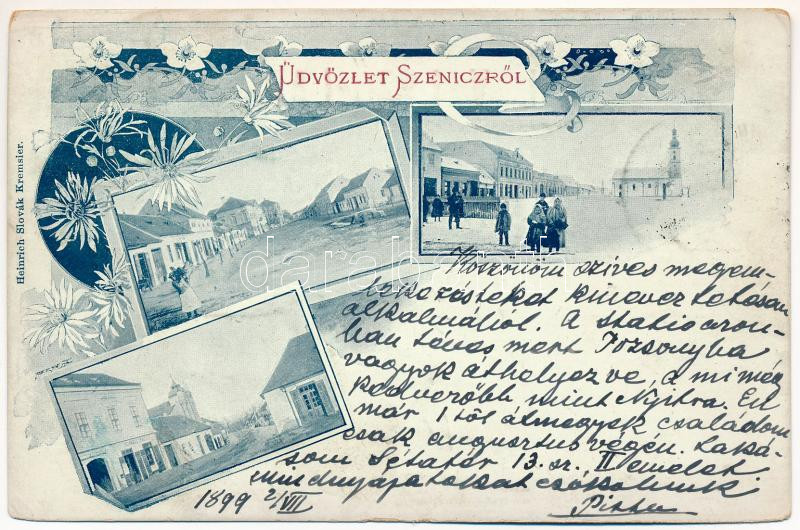 ÜDVÖZLET SZENICZRŐL
Heinrich Slovák Kremsier.
darabanth
Köszönöm szíves megem-
lékezésteket kineveztetésem
alkalmából. A statio azon-
ban téves mert Pozsonyba
vagyok áthelyezve, a mi még
kedvezőbb mint Nyitra. Én
már 1től átmegyek családom
csak augusztus végén. Laká-
som Sétatér 13. sz., II emelet
mindnyájatokat csókolunk
1899 2/VII
Pista